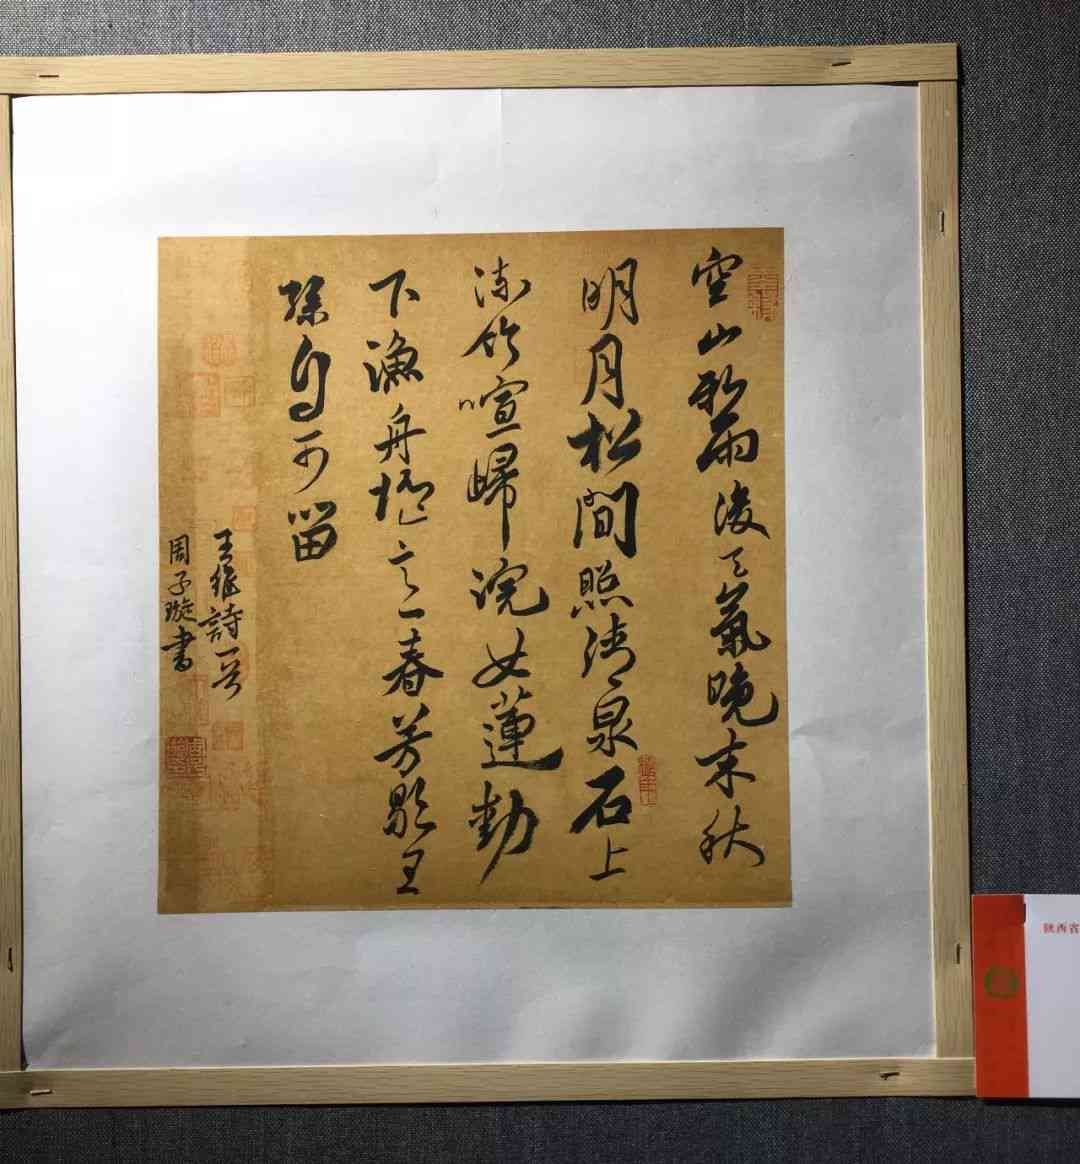 空山新雨後天氣晚来秋
明月松間照清泉石上
流竹喧歸浣女蓮動
下漁舟随意春芳歇王
孫自可留
王維詩一首
周子璇書
陕西省